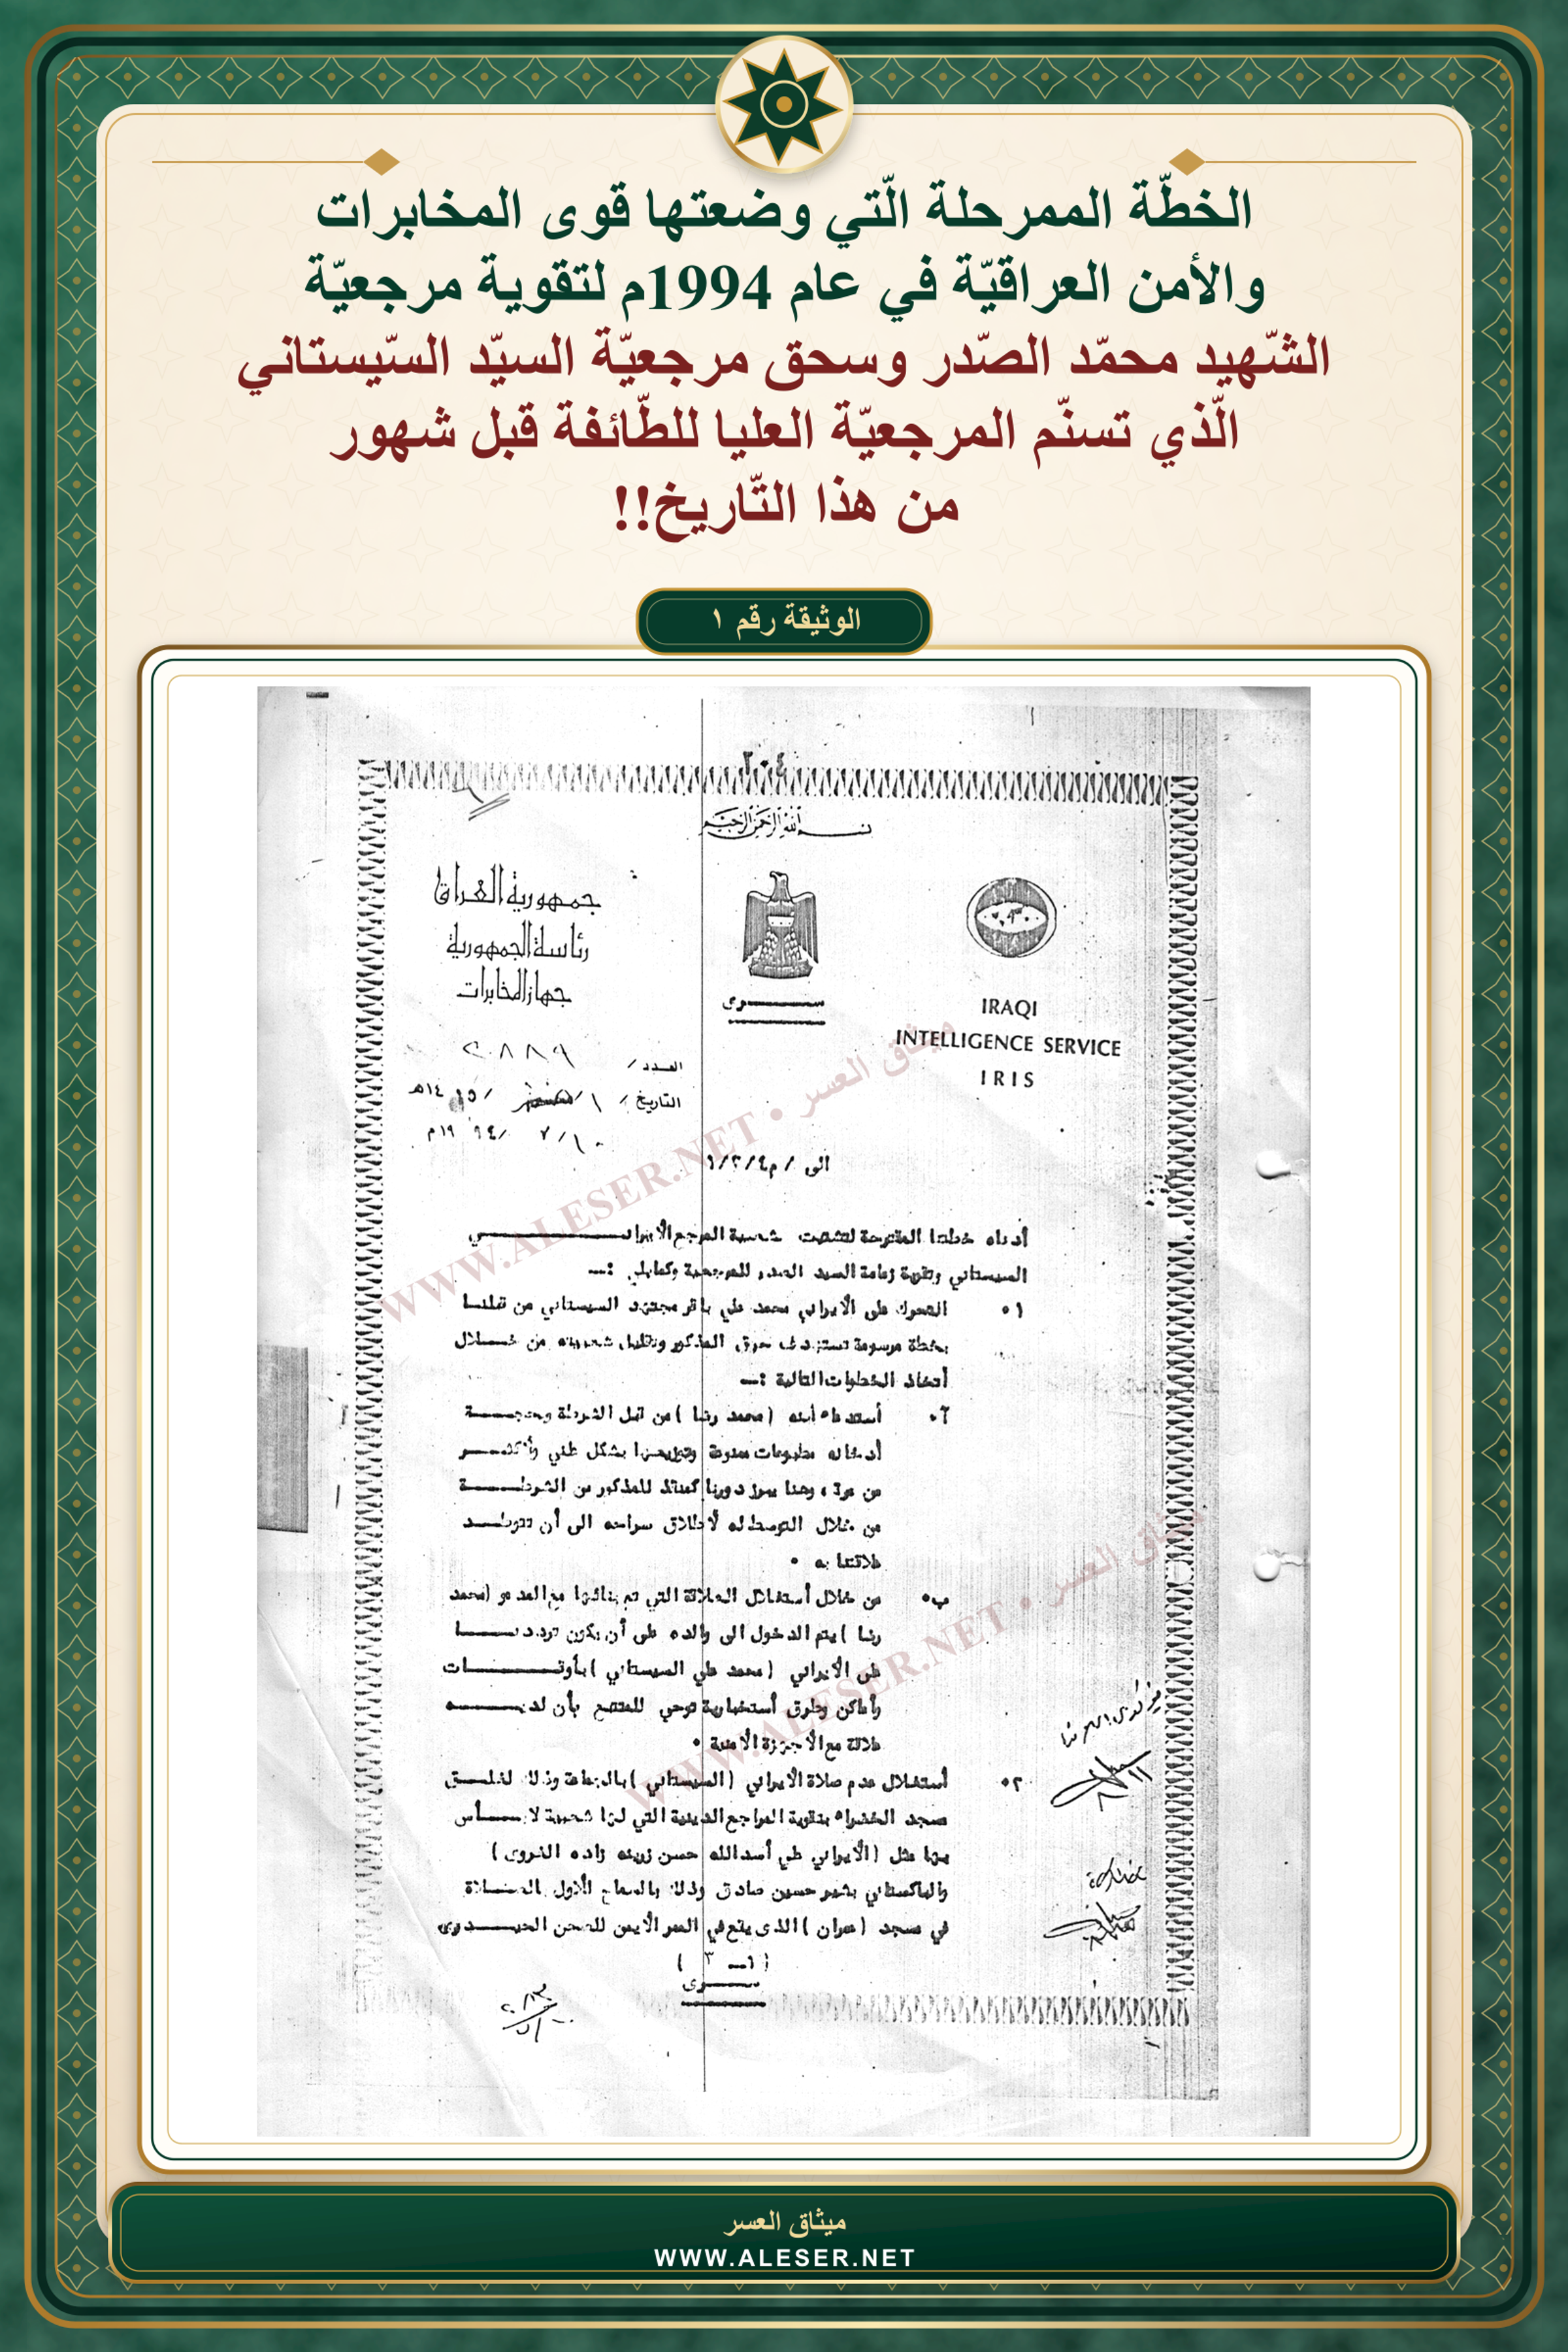 الخطّة الممرحلة الّتي وضعتها قوى المخابرات
والأمن العراقيّة في عام 1994م لتقوية مرجعيّة
الشّهيد محمّد الصّدر وسحق مرجعيّة السيّد السّيستاني
الّذي تسنّم المرجعيّة العليا للطّائفة قبل شهور
من هذا التّاريخ!!
الوثيقة رقم ١
٢٠٤
بسم الله الرحمن الرحيم
جمهورية العراق
رئاسة الجمهورية
جهاز المخابرات
سري
IRAQI
INTELLIGENCE SERVICE
IRIS
العدد /
التاريخ / ١ / / ١٤١٥هـ
١٠ / ٧ / ١٩٩٤م
الى / م٤/٢/١
أدناه خطتنا المقترحة لتشتيت شعبية المرجع الأيراني
السيستاني وتقوية زعامة السيد الصدر للمرجعية وكمايلي :ــ
١٠ التحرك على الايراني محمد علي باقر مجتهد السيستاني من قبلنا
بخطة مرسومة تستهدف حرق المذكور وتقليل شعبيته من خلال
أتخاذ الخطوات التالية :ــ
أ٠ أستدعاء أبنه (محمد رضا) من قبل الشرطة وبحجة
أدخاله مطبوعات ممنوعة وتوزيعها بشكل علني ولأكثر
من مرة ، وهنا يبرز دورنا كمنقذ للمذكور من الشرطة
من خلال التوسط له لأطلاق سراحه الى أن تتوطد
علاقتنا به ٠
ب٠ من خلال أستغلال العلاقة التي تم بنائها مع المدعو (محمد
رضا) يتم الدخول الى والده على أن يكون ترددنا
على الايراني (محمد علي السيستاني) بأوقات
وأماكن وطرق أستخبارية توحي للمتتبع بأن لديه
علاقة مع الاجهزة الامنية ٠
٢٠ أستغلال عدم صلاة الايراني (السيستاني) بالجماعة وذلك لغلق
مسجد الخضراء بتقوية المراجع الدينية التي لها شعبية لابأس
بها مثل (الايراني علي أسدالله حسن زرينه زاده الغروى)
والباكستاني بشير حسين صادق وذلك بالسماح للأول بالصلاة
في مسجد (عمران) الذى يقع في الممر الأيمن للصحن الحيدرى
(١ــ ٣)
سرى
WWW.ALESER.NET • ميثاق العسر
WWW.ALESER.NET • ميثاق العسر
ميثاق العسر
WWW.ALESER.NET